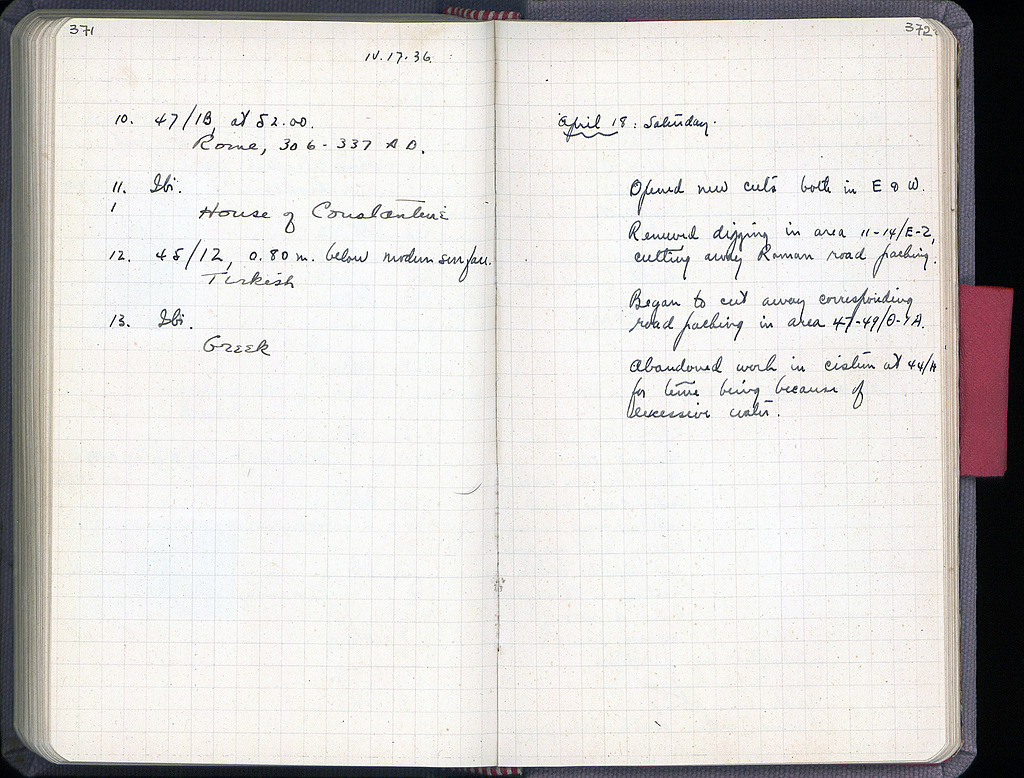 371
IV.17.36
10. 47/IB, at 52.00.
Rome, 306-337 A D.
11. Ibi.
House of Constantine
12. 45/12, 0.80 m. below modern surface.
Turkish
13. Ibi.
Greek
372
April 18: Saturday.
Opened new cuts both in E & W.
Renewed digging in area 11-14/E-Z,
cutting away Roman road packing.
Began to cut away corresponding
road packing in area 47-49/
Abandoned work in cistern at 44/A
for time being because of
excessive water.